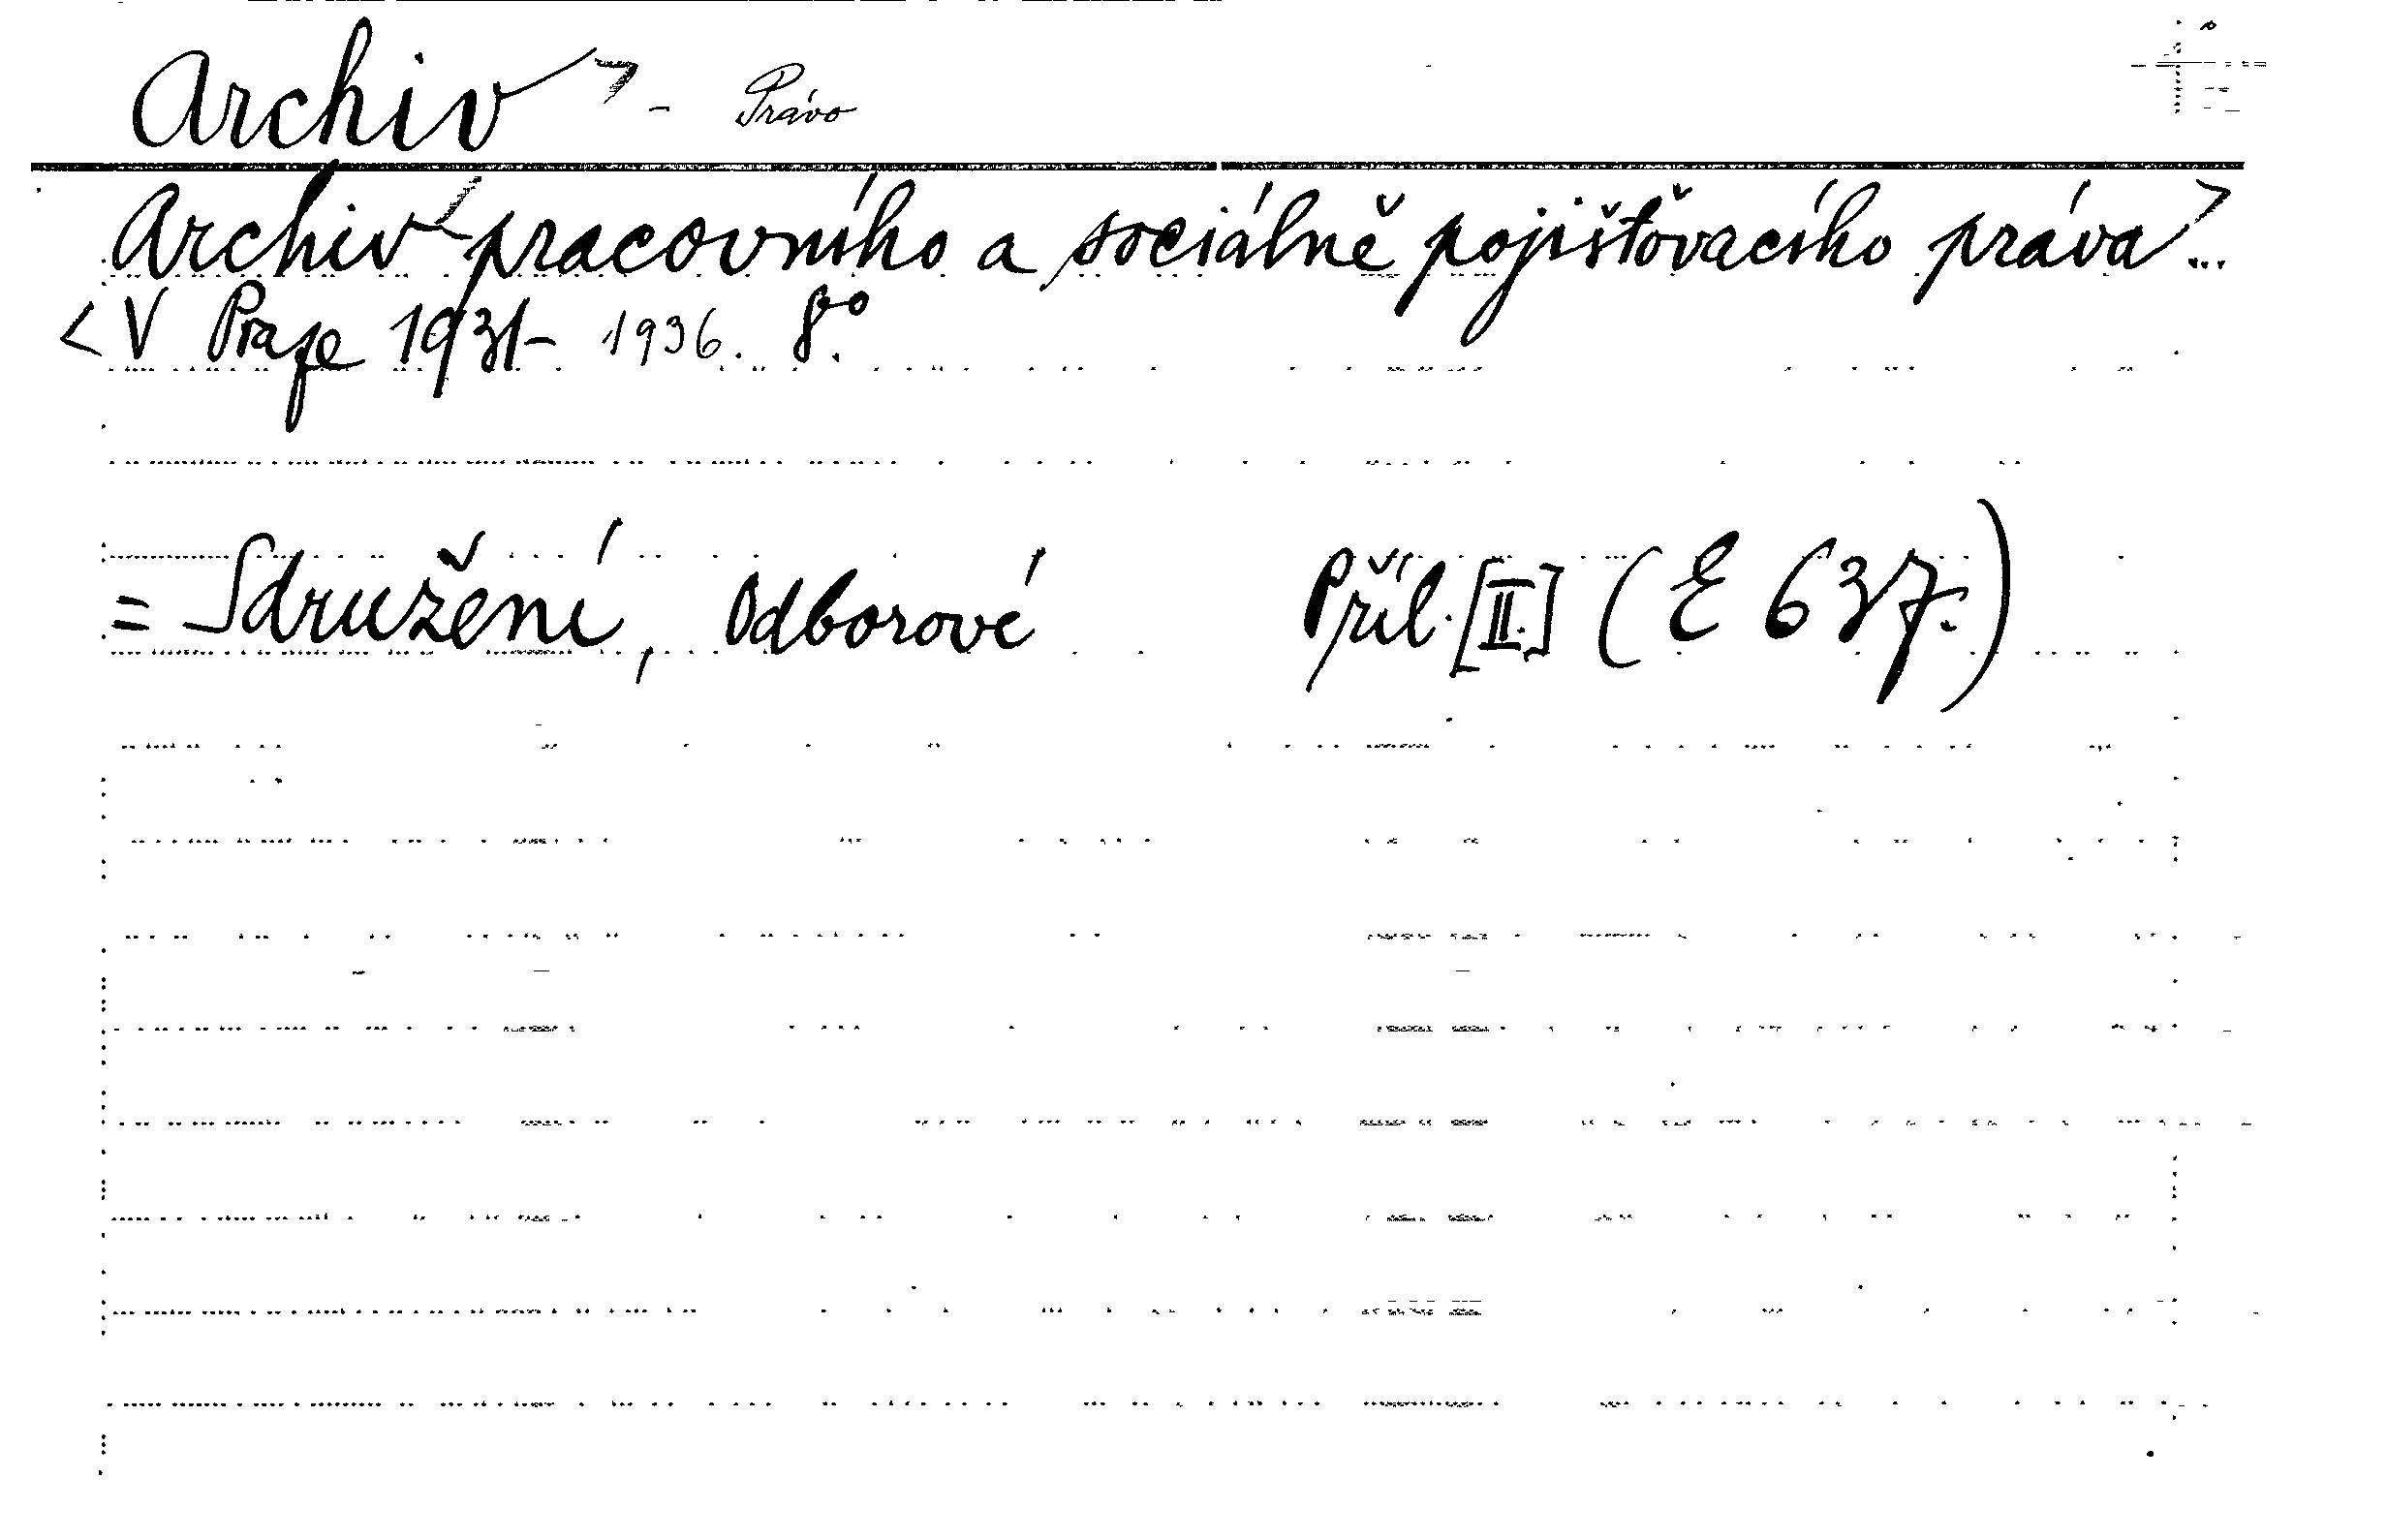 Archiv> - Právo
Archiv< pracovního a sociálně pojišťovacího práva>...
<V Praze 1931- 1936. 8º.
= Sdružení, Odborové Příl. [II.] (E 637.)